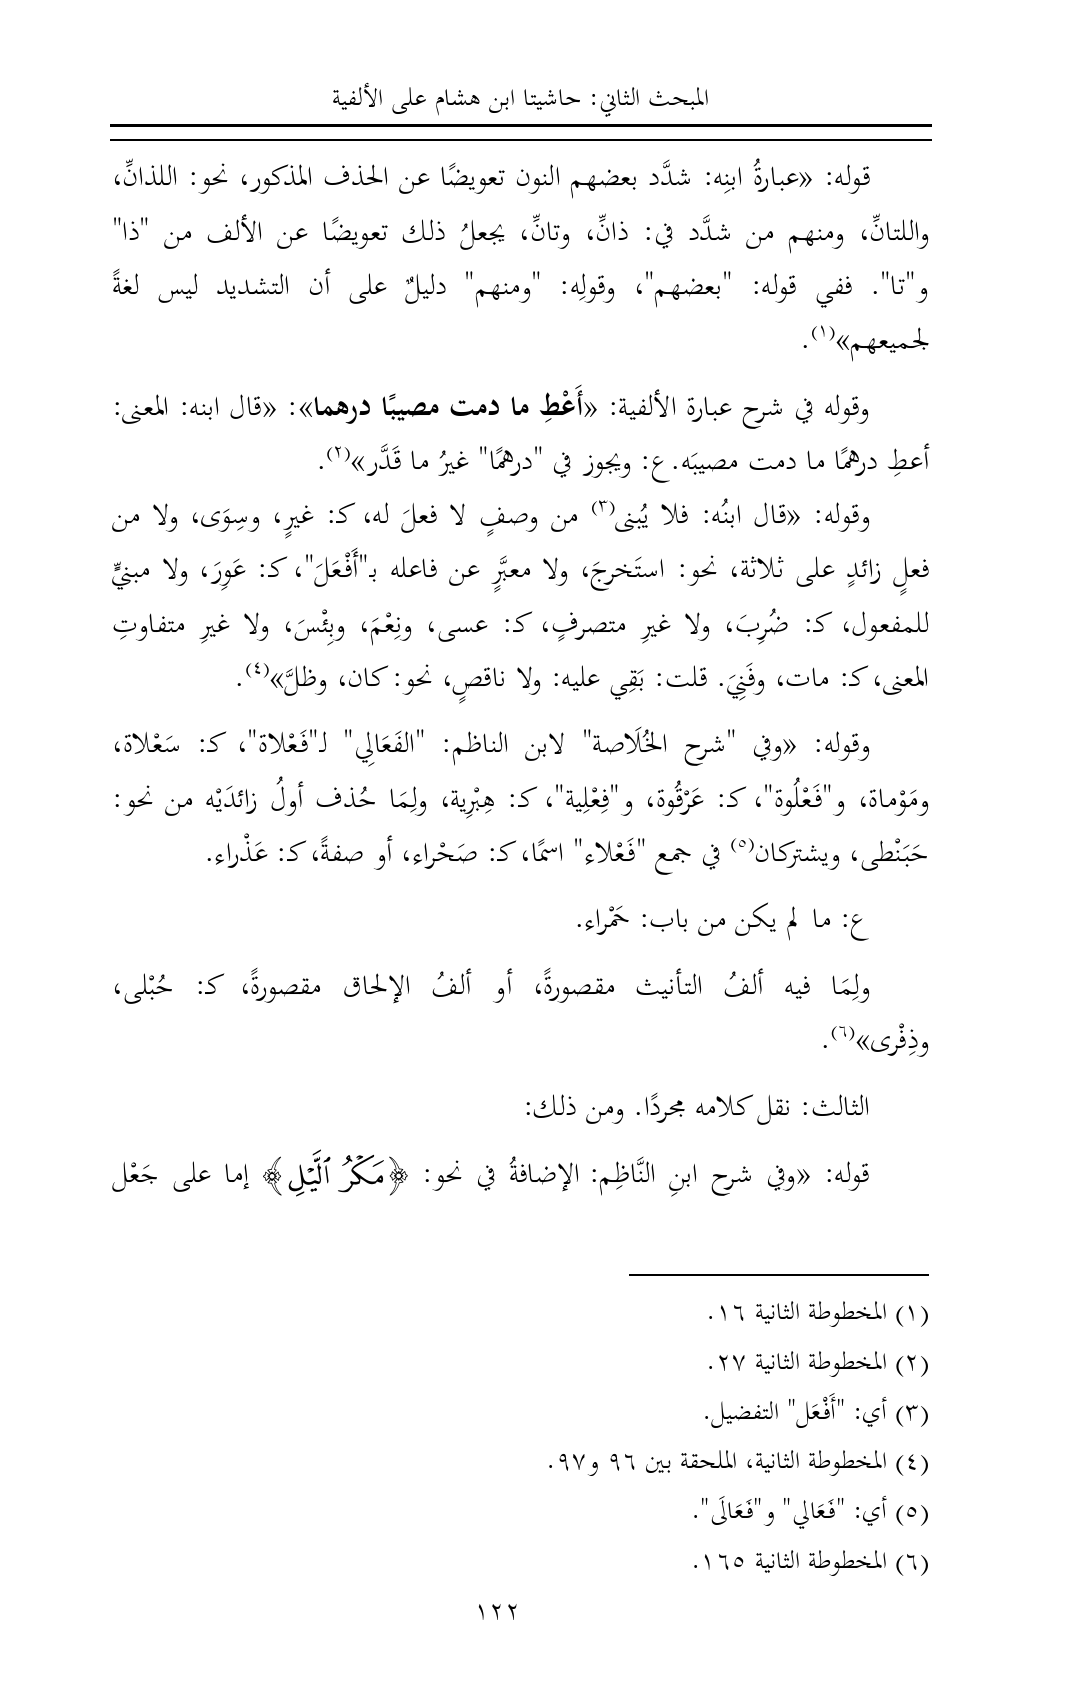 المبحث الثاني: حاشيتا ابن هشام على الألفية
قوله: «عبارةُ ابنِه: شدَّد بعضهم النون تعويضًا عن الحذف المذكور، نحو: اللذانِّ،
واللتانِّ، ومنهم من شدَّد في: ذانِّ، وتانِّ، يجعلُ ذلك تعويضًا عن الألف من "ذا"
و"تا". ففي قوله: "بعضهم"، وقولِه: "ومنهم" دليلٌ على أن التشديد ليس لغةً
لجميعهم»(١).
وقوله في شرح عبارة الألفية: «أَعْطِ ما دمت مصيبًا درهما»: «قال ابنه: المعنى:
أعطِ درهمًا ما دمت مصيبَه. ع: ويجوز في "درهمًا" غيرُ ما قَدَّر»(٢).
وقوله: «قال ابنُه: فلا يُبنى(٣) من وصفٍ لا فعلَ له، كـ: غيرٍ، وسِوَى، ولا من
فعلٍ زائدٍ على ثلاثة، نحو: استَخرجَ، ولا معبَّرٍ عن فاعله بـ"أَفْعَلَ"، كـ: عَوِرَ، ولا مبنيٍّ
للمفعول، كـ: ضُرِبَ، ولا غيرِ متصرفٍ، كـ: عسى، ونِعْمَ، وبِئْسَ، ولا غيرِ متفاوتِ
المعنى، كـ: مات، وفَنِيَ. قلت: بَقِي عليه: ولا ناقصٍ، نحو: كان، وظلَّ»(٤).
وقوله: «وفي "شرح الخُلَاصة" لابن الناظم: "الفَعَالِي" لـ"فَعْلاة"، كـ: سَعْلاة،
ومَوْماة، و"فَعْلُوة"، كـ: عَرْقُوة، و"فِعْلِية"، كـ: هِبْرِية، ولِمَا حُذف أولُ زائدَيْه من نحو:
حَبَنْطى، ويشتركان(٥) في جمع "فَعْلاء" اسمًا، كـ: صَحْراء، أو صفةً، كـ: عَذْراء.
ع: ما لم يكن من باب: حَمْراء.
ولِمَا فيه ألفُ التأنيث مقصورةً، أو ألفُ الإلحاق مقصورةً، كـ: حُبْلى،
وذِفْرى»(٦).
الثالث: نقل كلامه مجردًا. ومن ذلك:
قوله: «وفي شرح ابنِ النَّاظِم: الإضافةُ في نحو: ﴿مَكۡرُ ٱلَّيۡلِ﴾ إما على جَعْل
(١) المخطوطة الثانية ١٦.
(٢) المخطوطة الثانية ٢٧.
(٣) أي: "أَفْعَل" التفضيل.
(٤) المخطوطة الثانية، الملحقة بين ٩٦ و٩٧.
(٥) أي: "فَعَالي" و"فَعَالَى".
(٦) المخطوطة الثانية ١٦٥.
١٢٢